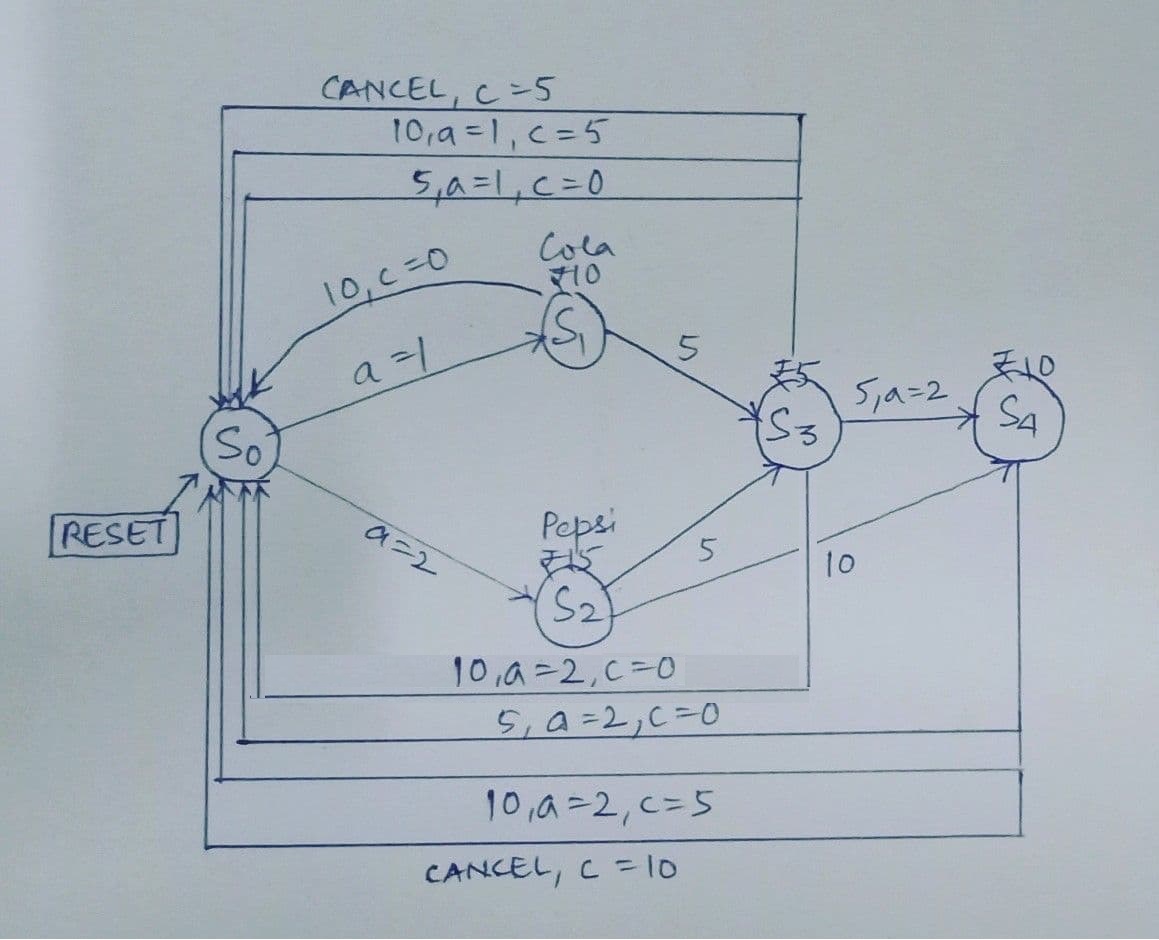 CANCEL, C=5
10,a=1, C=5
5,a=1, C=0
Cola
₹10
10, C=0
S1
a=1
5
₹5
₹10
5,a=2
S3
S4
S0
RESET
Pepsi
₹15
a=2
5
10
S2
10,a=2,C=0
5, a=2,C=0
10,a=2,C=5
CANCEL, C=10